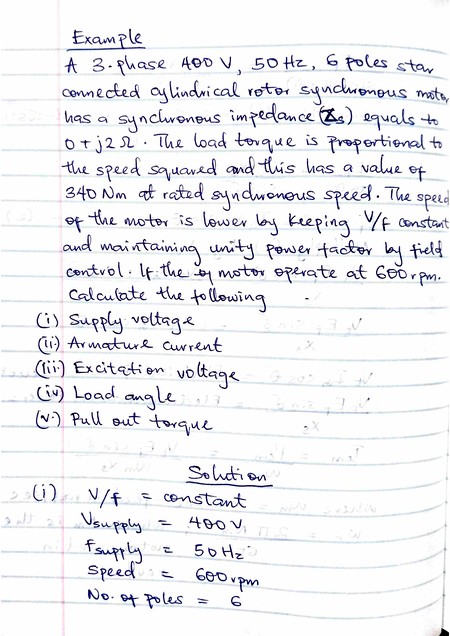 Example
A 3-phase 400 V, 50 Hz, 6 poles star
connected cylindrical rotor synchronous motor
has a synchronous impedance (Zs) equals to
0 + j2 Ω. The load torque is proportional to
the speed squared and this has a value of
340 Nm at rated synchronous speed. The speed
of the motor is lower by keeping V/f constant
and maintaining unity power factor by field
control. If the motor operate at 600 rpm.
Calculate the following
(i) Supply voltage
(ii) Armature current
(iii) Excitation voltage
(iv) Load angle
(v.) Pull out torque
Solution
(i) V/f = constant
Vsupply = 400 V
fsupply = 50 Hz
Speed = 600 rpm
No. of poles = 6